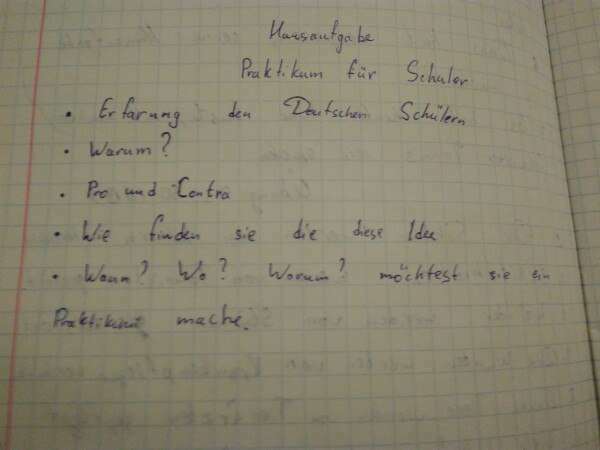 Hausaufgabe
Praktikum für Schüler
• Erfarung den Deutschem Schülern
• Warum?
• Pro und Contra
• Wie finden sie die diese Idee
• Wann? Wo? Worum? möchtest sie ein
Praktikum mache.